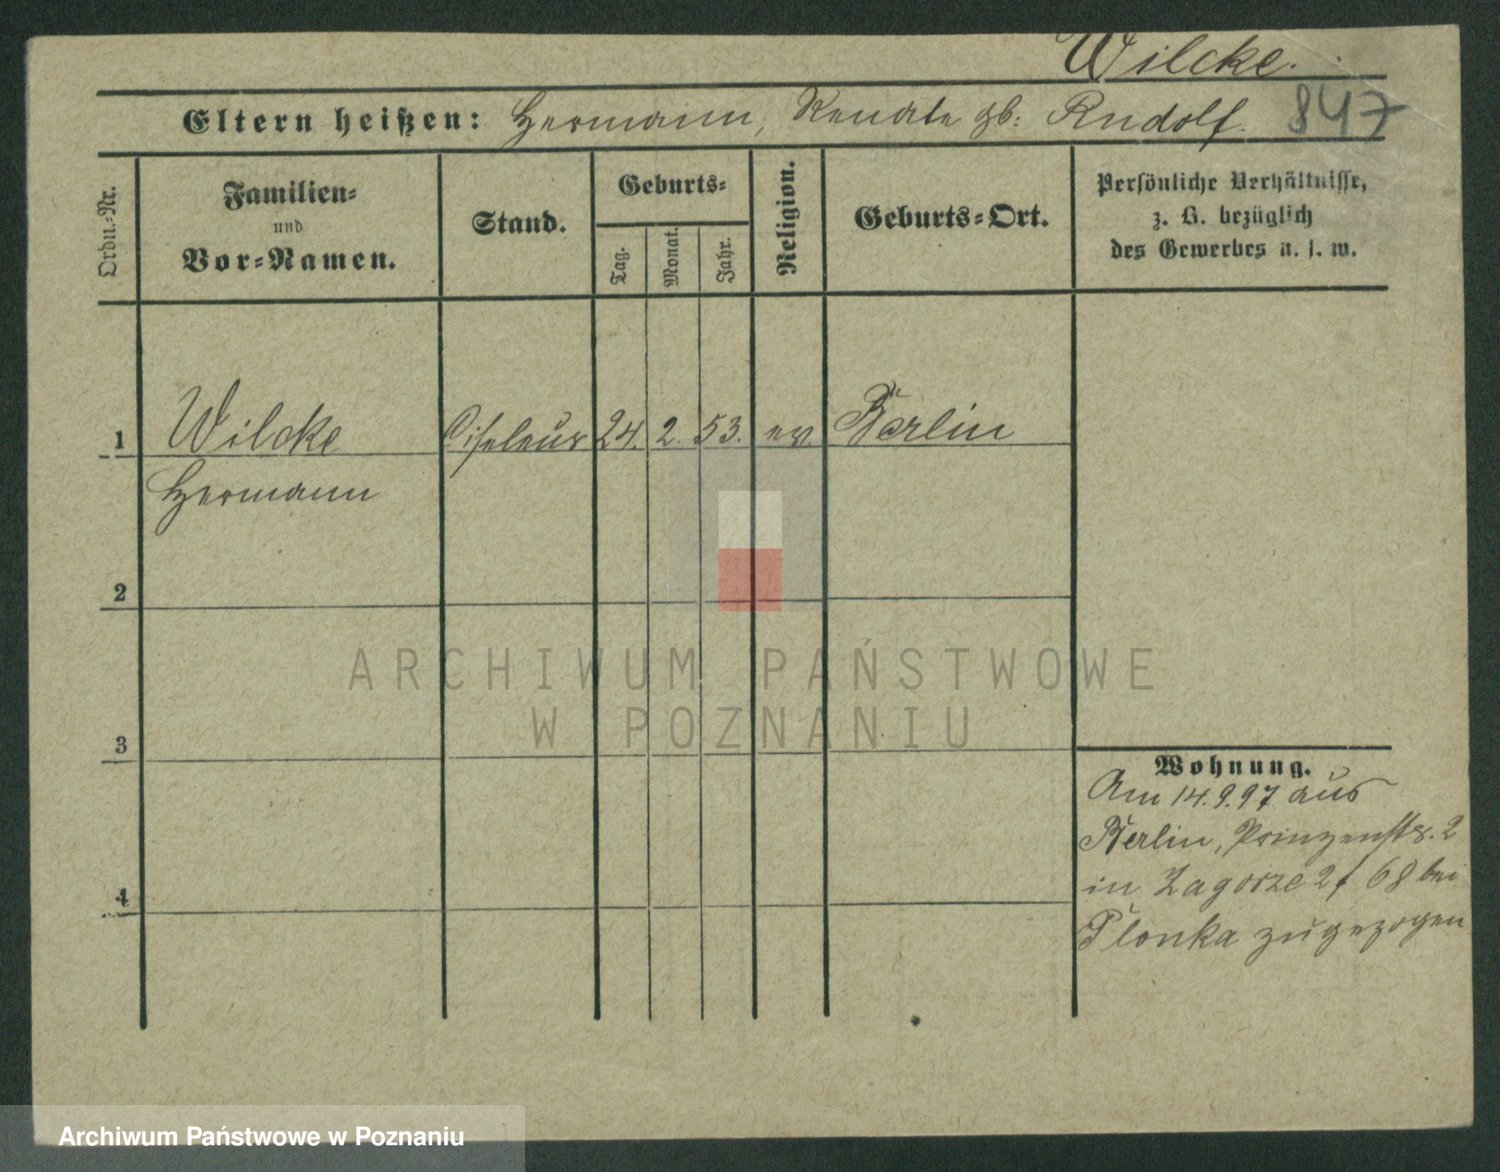 Wilcke.
Eltern heißen: Hermann, Renate gb: Rudolf.
847
Ordn.-Nr.
Familien-
und
Vor-Namen.
Stand.
Geburts-
Tag.
Monat.
Jahr.
Religion.
Geburts-Ort.
Persönliche Verhältnisse,
z. B. bezüglich
des Gewerbes u. s. w.
1 Wilcke Ciseleur 24. 2. 53. ev. Berlin
Hermann
2
3
4
ARCHIWUM PAŃSTWOWE
W POZNANIU
Wohnung.
Am 14.9.97 aus
Berlin, Prinzenstr. 2
in Zagorze 68 bei
Plonka zugezogen
Archiwum Państwowe w Poznaniu